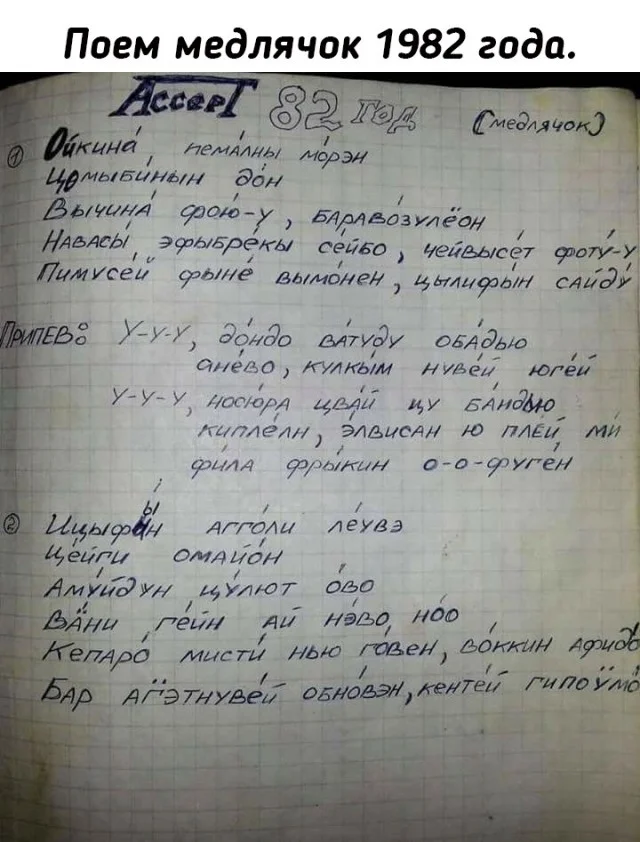 Поем медлячок 1982 года.
АссерТ 82 год (медлячок)
① Ойкина́, пема́лны мо́рэн
Цомыби́нын до́н
Вычина́ фрою́-у, бараво́зулёон
Навасы́, эфыбре́кы се́йбо, чейвысе́т фоту́-у
Пимусе́й фыне́ вымо́нен, цылифы́н сайду́
Припев: У-у-у, до́ндо ва́туду оба́дью
ане́во, кулкы́м нуве́й юге́й
У-у-у, носю́ра цва́й цу ба́ндью
кипле́лн, э́лвисан ю пле́й ми́
фи́ла фры́кин о-о-фуге́н
② Ицыфы́н агго́ли ле́увэ
Це́йги омайо́н
Аму́йдун цу́лют о́во
Ва́ни ге́йн ай нэ́во, но́о
Кепаро́ мисти́ нью го́вен, во́ккин афидо́
Бар агэтнуве́й обно́вэн, кенте́й гипоумо́